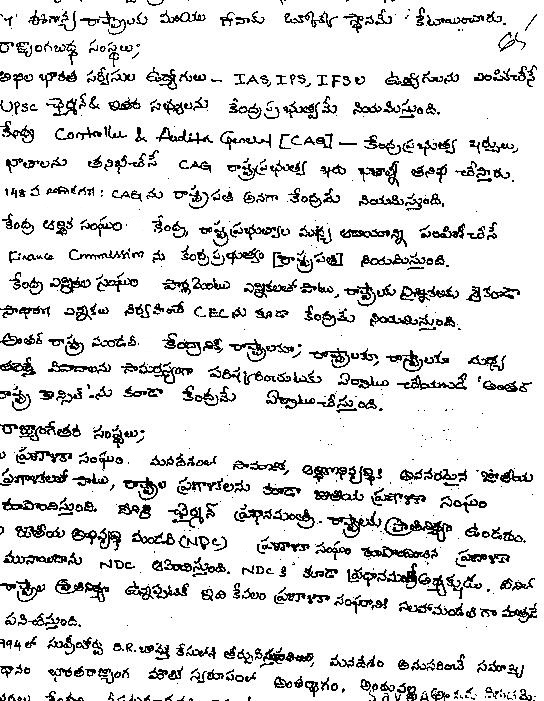 ఈశాన్య రాష్ట్రాలకు మరియు గోవాకు ఒక్కొక్క స్థానమే కేటాయించారు.
రాజ్యాంగబద్ధ సంస్థలు;
అఖిల భారత సర్వీసుల ఉద్యోగులు - IAS, IPS, IFSల ఉద్యోగులను ఎంపికచేసే
UPSC ఛైర్మన్‌ & ఇతర సభ్యులను కేంద్రప్రభుత్వమే నియమిస్తుంది.
కేంద్ర Controller & Auditor General [CAG] - కేంద్రప్రభుత్వ ఖర్చులు,
ఖాతాలను తనిఖీచేసే CAG రాష్ట్రప్రభుత్వ ఖాతాల్ని తనిఖీ చేస్తారు.
148 వ అధికరణ: CAG ను రాష్ట్రపతి అనగా కేంద్రమే నియమిస్తుంది.
కేంద్ర ఆర్థిక సంఘం: కేంద్ర, రాష్ట్రప్రభుత్వాల మధ్య ఆదాయాన్ని పంపిణీచేసే
Finance Commission ను కేంద్రప్రభుత్వం [రాష్ట్రపతి] నియమిస్తుంది.
కేంద్ర ఎన్నికల సంఘం పార్లమెంటు ఎన్నికలతో పాటు, రాష్ట్రాలకు
ఎన్నికలు నిర్వహించే CEC ను కూడా కేంద్రమే నియమిస్తుంది.
అంతర్ రాష్ట్ర మండలి: కేంద్రానికి, రాష్ట్రాలకూ; రాష్ట్రాలకు, రాష్ట్రాలకూ మధ్య
వివాదాలను సామరస్యంగా పరిష్కరించుటకు ఏర్పాటు చేయబడే 'అంతర
రాష్ట్ర కౌన్సిల్'ను కూడా కేంద్రమే ఏర్పాటుచేస్తుంది.
రాజ్యాంగేతర సంస్థలు;
ప్రణాళికా సంఘం: మనదేశంలో సామాజిక, ఆర్థికాభివృద్ధికి అవసరమైన జాతీయ
ప్రణాళికలతో పాటు, రాష్ట్రాల ప్రణాళికలను కూడా జాతీయ ప్రణాళికా సంఘం
రూపొందిస్తుంది. దీనికి ఛైర్మన్ ప్రధానమంత్రి. రాష్ట్రాలకు ప్రాతినిధ్యం ఉండదు.
జాతీయ అభివృద్ధి మండలి (NDC) ప్రణాళికా సంఘం రూపొందించిన ప్రణాళికా
ముసాయిదాను NDC ఆమోదిస్తుంది. NDC కి కూడా ప్రధానమంత్రి అధ్యక్షుడు. దీనిలో
రాష్ట్రాల ప్రాతినిధ్యం ఉన్నప్పటికీ ఇది కేవలం ప్రణాళికా సంఘానికి సలహామండలి గా మాత్రమే
పనిచేస్తుంది.
1994లో సుప్రీంకోర్టు S.R. బొమ్మై కేసులో తీర్పునిస్తూ, మనదేశం అనుసరించే సమాఖ్య
విధానం భారతరాజ్యాంగ మౌలిక స్వరూపంలో అంతర్భాగం.